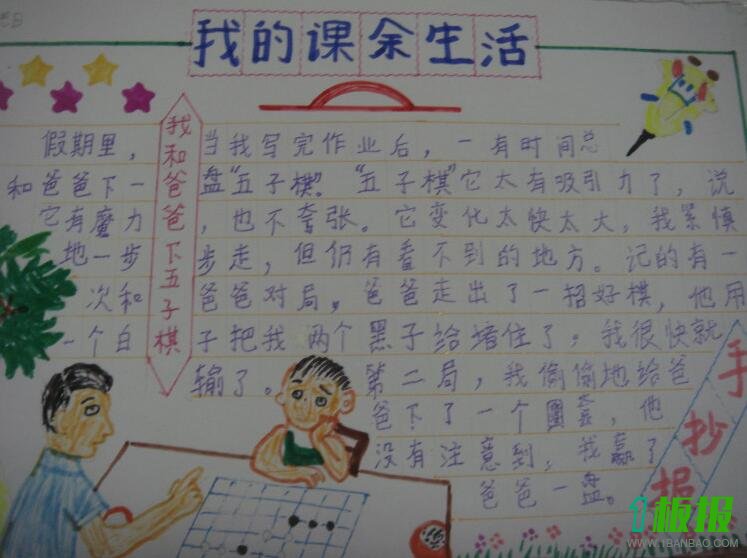 我的课余生活
我和爸爸下五子棋
假期里，当我写完作业后，一有时间总
和爸爸下一盘“五子棋”。“五子棋”它太有吸引力了，说
它有魔力，也不夸张。它变化太快太大，我紧慎
地一步步走，但仍有看不到的地方。记的有一
次和爸爸对局，爸爸走出了一招好棋，他用
一个白子把我两个黑子给堵住了，我很快就
输了。第二局，我偷偷地给爸
爸下了一个圈套，他
没有注意到，我赢了
爸爸一盘。
手抄报
板报
WWW.1BANBAO.COM